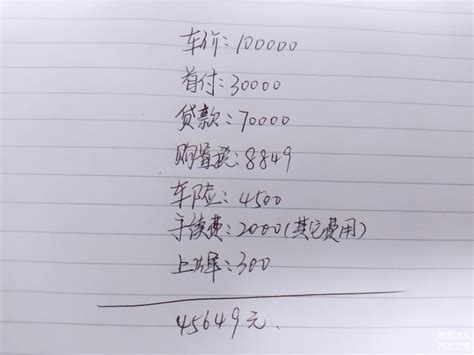 车价:100000
首付:30000
贷款:70000
购置税:8849
车险:4500
手续费:2000(其它费用)
上牌:300
45649元.